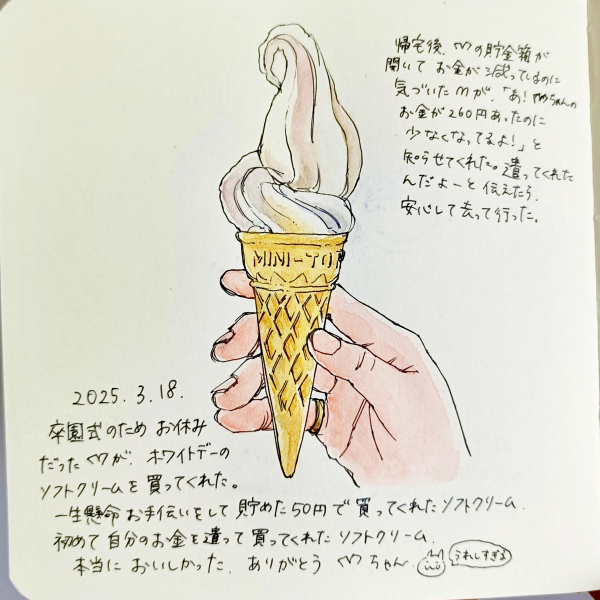 帰宅後、の貯金箱が
開いて お金が減っているのに
気づいたMが、「あ!ちゃんの
お金が260円あったのに
少なくなってるよ!」と
知らせてくれた。遣ってくれた
んだよーと伝えたら、
安心して去って行った。
MINI-TO
2025.3.18.
卒園式のため お休み
だったが、ホワイトデーの
ソフトクリームを買ってくれた。
一生懸命お手伝いをして貯めた50円で買ってくれたソフトクリーム.
初めて自分のお金を遣って買ってくれたソフトクリーム.
本当においしかった. ありがとう ちゃん.
うれしすぎる